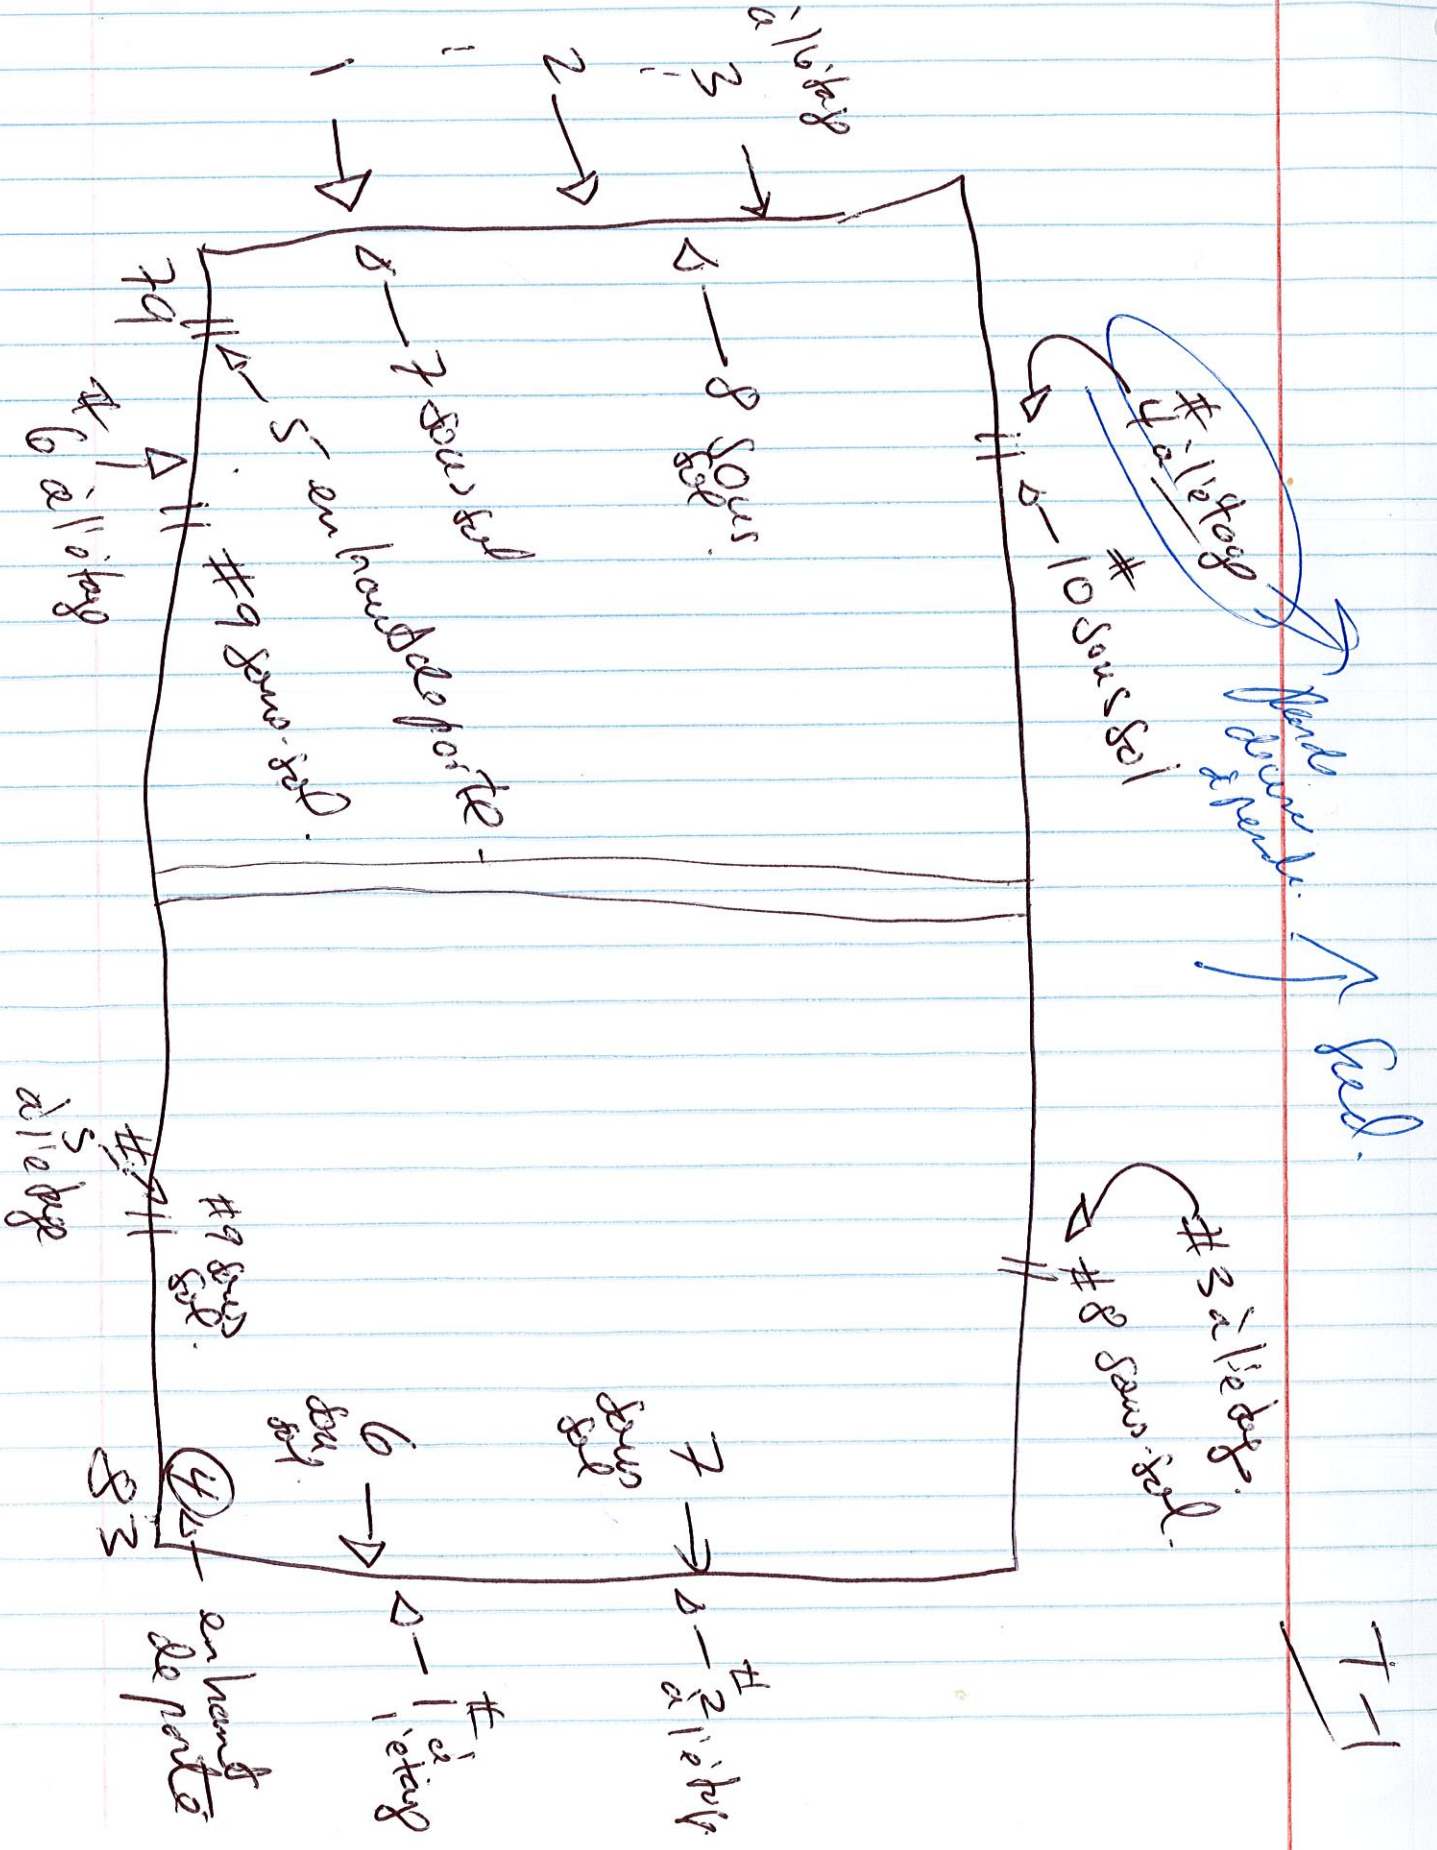 T-1
Sud.
# 4 à l'étage
# 10 sous sol
# 3 à l'étage
# 8 sous-sol.
à l'étage
3
"
2
"
1
8 sous
sol.
7 sous sol
5 en haut de porte.
79
# 6 à l'étage
# 9 sous-sol.
# 5
à l'étage
# 9 sous
sol.
7
sous
sol
6
sous
sol
4
83
en haut
de porte
# 2
à l'étage
# 1 à
l'étage